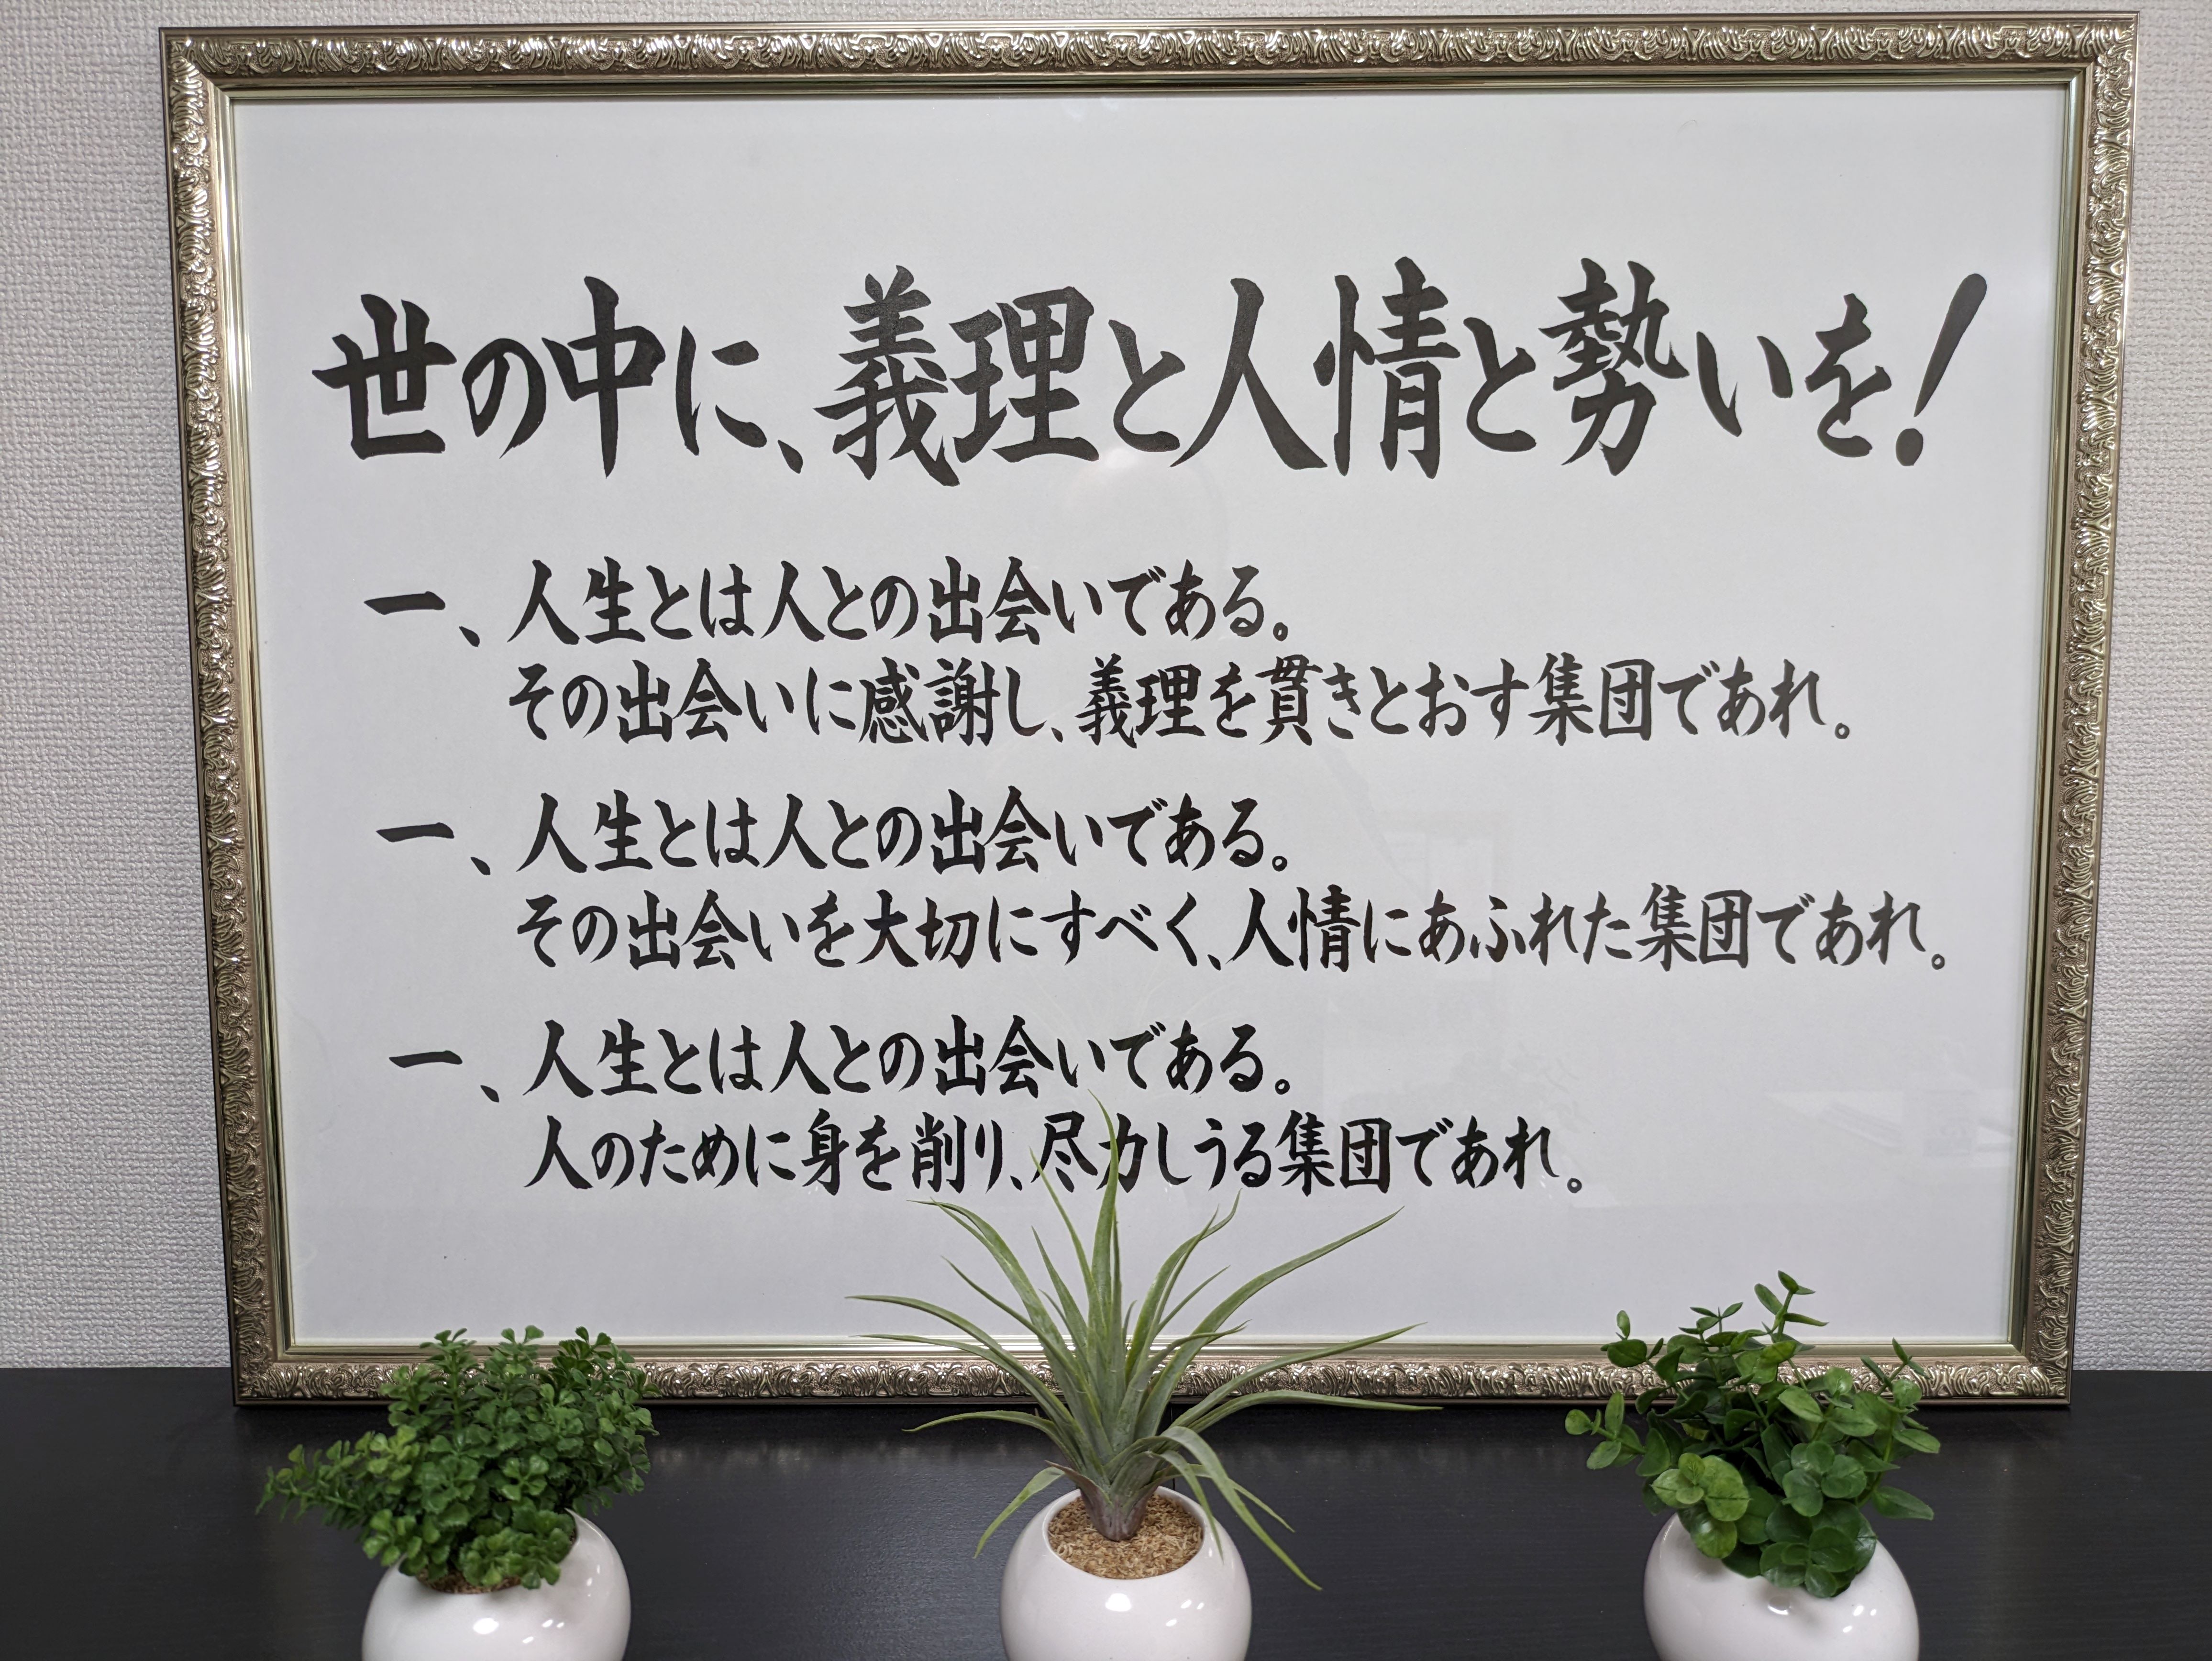 世の中に、義理と人情と勢いを!
一、人生とは人との出会いである。
その出会いに感謝し、義理を貫きとおす集団であれ。
一、人生とは人との出会いである。
その出会いを大切にすべく、人情にあふれた集団であれ。
一、人生とは人との出会いである。
人のために身を削り、尽力しうる集団であれ。